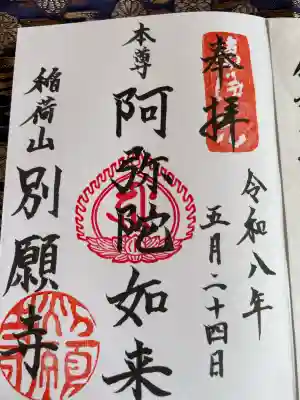 奉拝
令和八年
五月二十四日
本尊
阿弥陀如来
稲荷山
別願寺